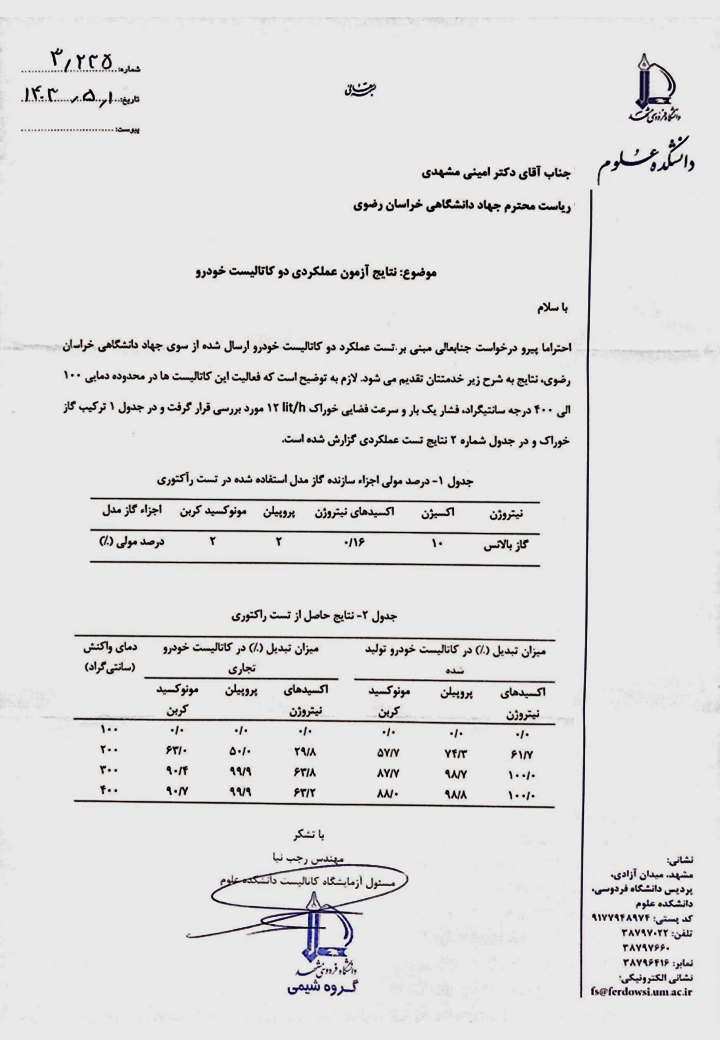 شماره: ۳/۲۲۵
تاریخ: ۱۴۰۳/۵/۱
پیوست:
دانشگاه فردوسی مشهد
دانشکده علوم
جناب آقای دکتر امینی مشهدی
ریاست محترم جهاد دانشگاهی خراسان رضوی
موضوع: نتایج آزمون عملکردی دو کاتالیست خودرو
با سلام
احتراما پیرو درخواست جنابعالی مبنی بر تست عملکرد دو کاتالیست خودرو ارسال شده از سوی جهاد دانشگاهی خراسان
رضوی، نتایج به شرح زیر خدمتتان تقدیم می شود. لازم به توضیح است که فعالیت این کاتالیست ها در محدوده دمایی ۱۰۰
الی ۴۰۰ درجه سانتیگراد، فشار یک بار و سرعت فضایی خوراک ۱۲ lit/h مورد بررسی قرار گرفت و در جدول ۱ ترکیب گاز
خوراک و در جدول شماره ۲ نتایج تست عملکردی گزارش شده است.
جدول ۱- درصد مولی اجزاء سازنده گاز مدل استفاده شده در تست رآکتوری
نیتروژن اکسیژن اکسیدهای نیتروژن پروپیلن مونوکسید کربن اجزاء گاز مدل
گاز بالانس ۱۰ ۰/۱۶ ۲ ۲ درصد مولی (٪)
جدول ۲- نتایج حاصل از تست راکتوری
میزان تبدیل (٪) در کاتالیست خودرو تولید میزان تبدیل (٪) در کاتالیست خودرو دمای واکنش
شده تجاری (سانتی‌گراد)
اکسیدهای پروپیلن مونوکسید اکسیدهای پروپیلن مونوکسید
نیتروژن کربن نیتروژن کربن
۰/۰ ۰/۰ ۰/۰ ۰/۰ ۰/۰ ۰/۰ ۱۰۰
۶۱/۷ ۷۴/۳ ۵۷/۷ ۲۹/۸ ۵۰/۰ ۶۳/۰ ۲۰۰
۱۰۰/۰ ۹۸/۷ ۸۷/۷ ۶۳/۸ ۹۹/۹ ۹۰/۴ ۳۰۰
۱۰۰/۰ ۹۸/۸ ۸۸/۰ ۶۳/۲ ۹۹/۹ ۹۰/۷ ۴۰۰
با تشکر
مهندس رجب نیا
مسئول آزمایشگاه کاتالیست دانشکده علوم
دانشگاه فردوسی مشهد
گروه شیمی
نشانی:
مشهد، میدان آزادی،
پردیس دانشگاه فردوسی،
دانشکده علوم
کد پستی: ۹۱۷۷۹۴۸۹۷۴
تلفن: ۳۸۷۹۷۰۲۲
۳۸۷۹۷۶۶۰
نمابر: ۳۸۷۹۶۴۱۶
نشانی الکترونیکی:
fs@ferdowsi.um.ac.ir